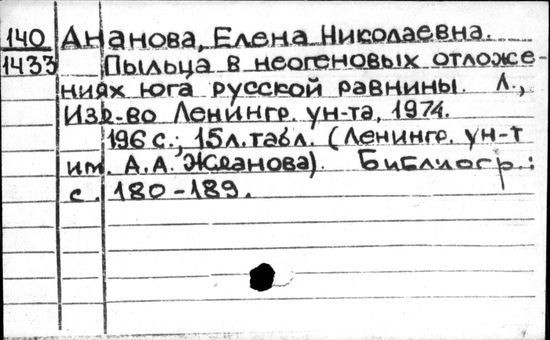 140 Ананова, Елена Николаевна.
1433 Пыльца в неогеновых отложе-
ниях юга русской равнины. Л.,
Изд-во Ленингр. ун-та, 1974.
196 с.; 15 л. табл. (Ленингр. ун-т
им. А.А. Жданова). Библиогр.:
с. 180-189.